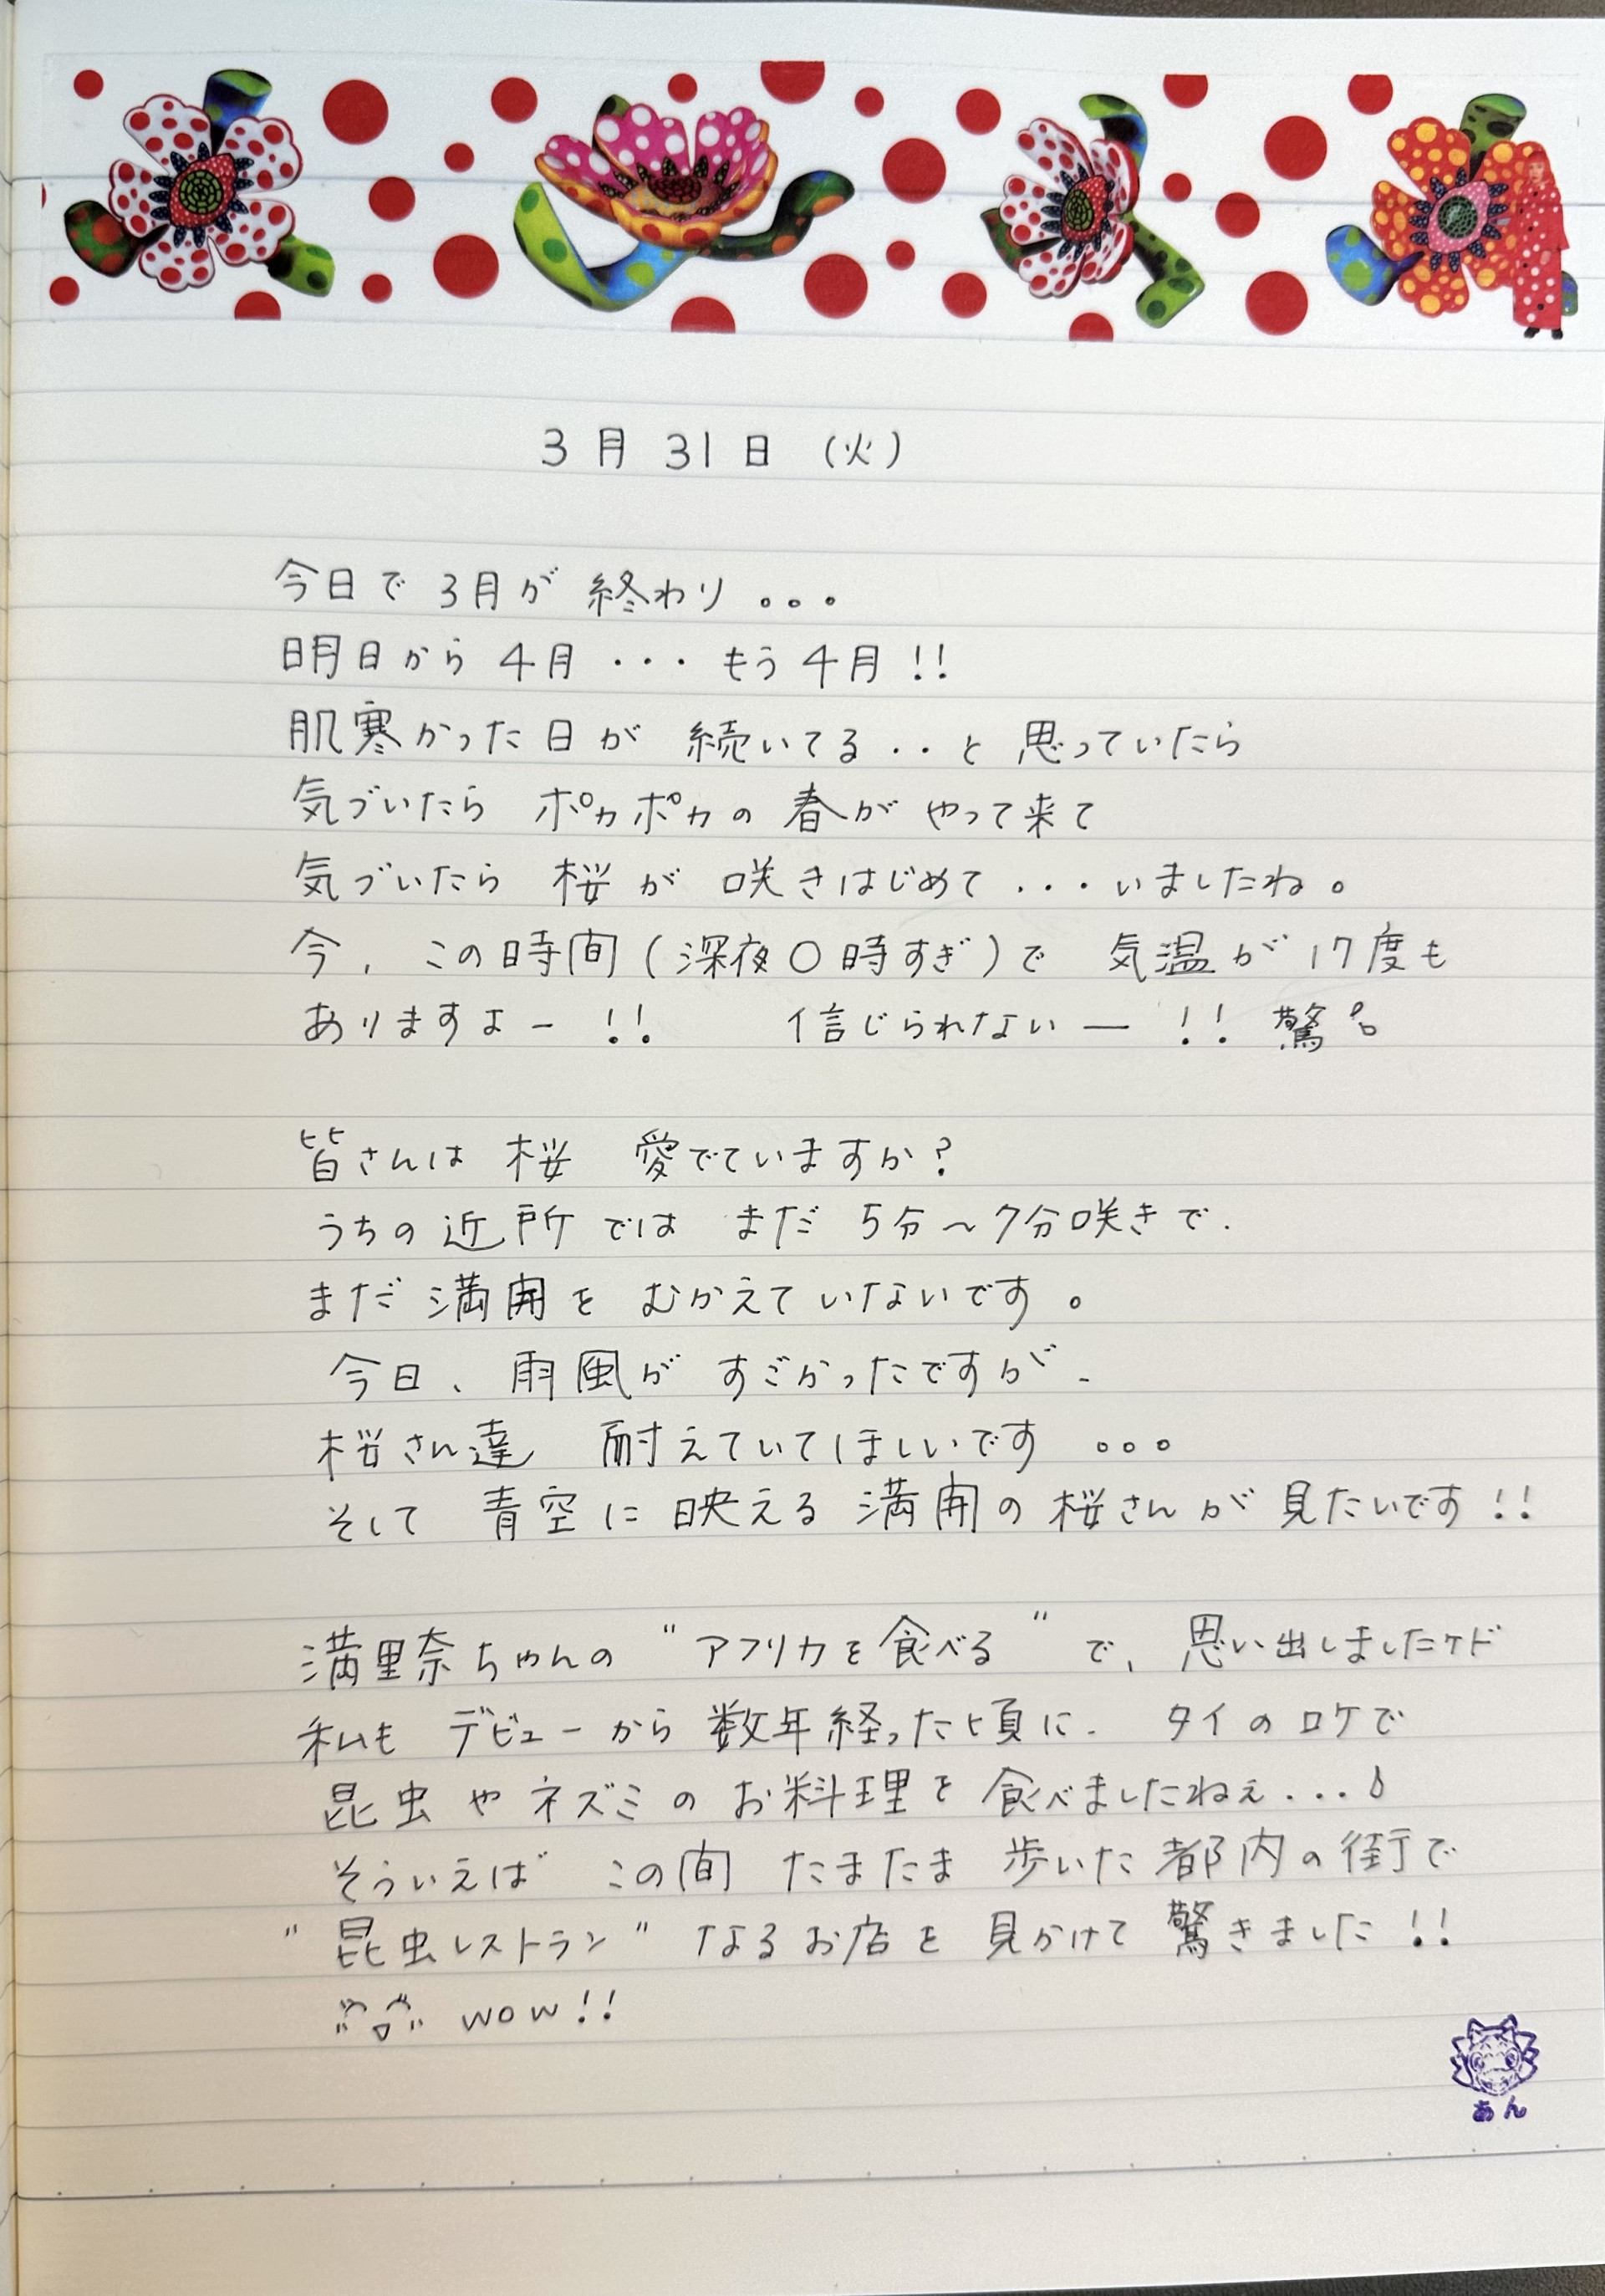 3月31日(火)
今日で3月が終わり。。。
明日から4月・・・もう4月!!
肌寒かった日が続いてる・・と思っていたら
気づいたらポカポカの春がやって来て
気づいたら桜が咲きはじめて・・・いましたね。
今、この時間(深夜0時すぎ)で気温が17度も
ありますよー!! 信じられないー!!驚
皆さんは桜 愛でていますか?
うちの近所ではまだ5分〜7分咲きで、
まだ満開をむかえていないです。
今日、雨風がすごかったですが、
桜さん達 耐えていてほしいです。。。
そして青空に映える満開の桜さんが見たいです!!
満里奈ちゃんの"アフリカを食べる"で、思い出しましたケド
私もデビューから数年経った頃に、タイのロケで
昆虫やネズミのお料理を食べましたねぇ...
そういえば この間 たまたま歩いた都内の街で
"昆虫レストラン"なるお店を見かけて驚きました!!
wow!!
あん